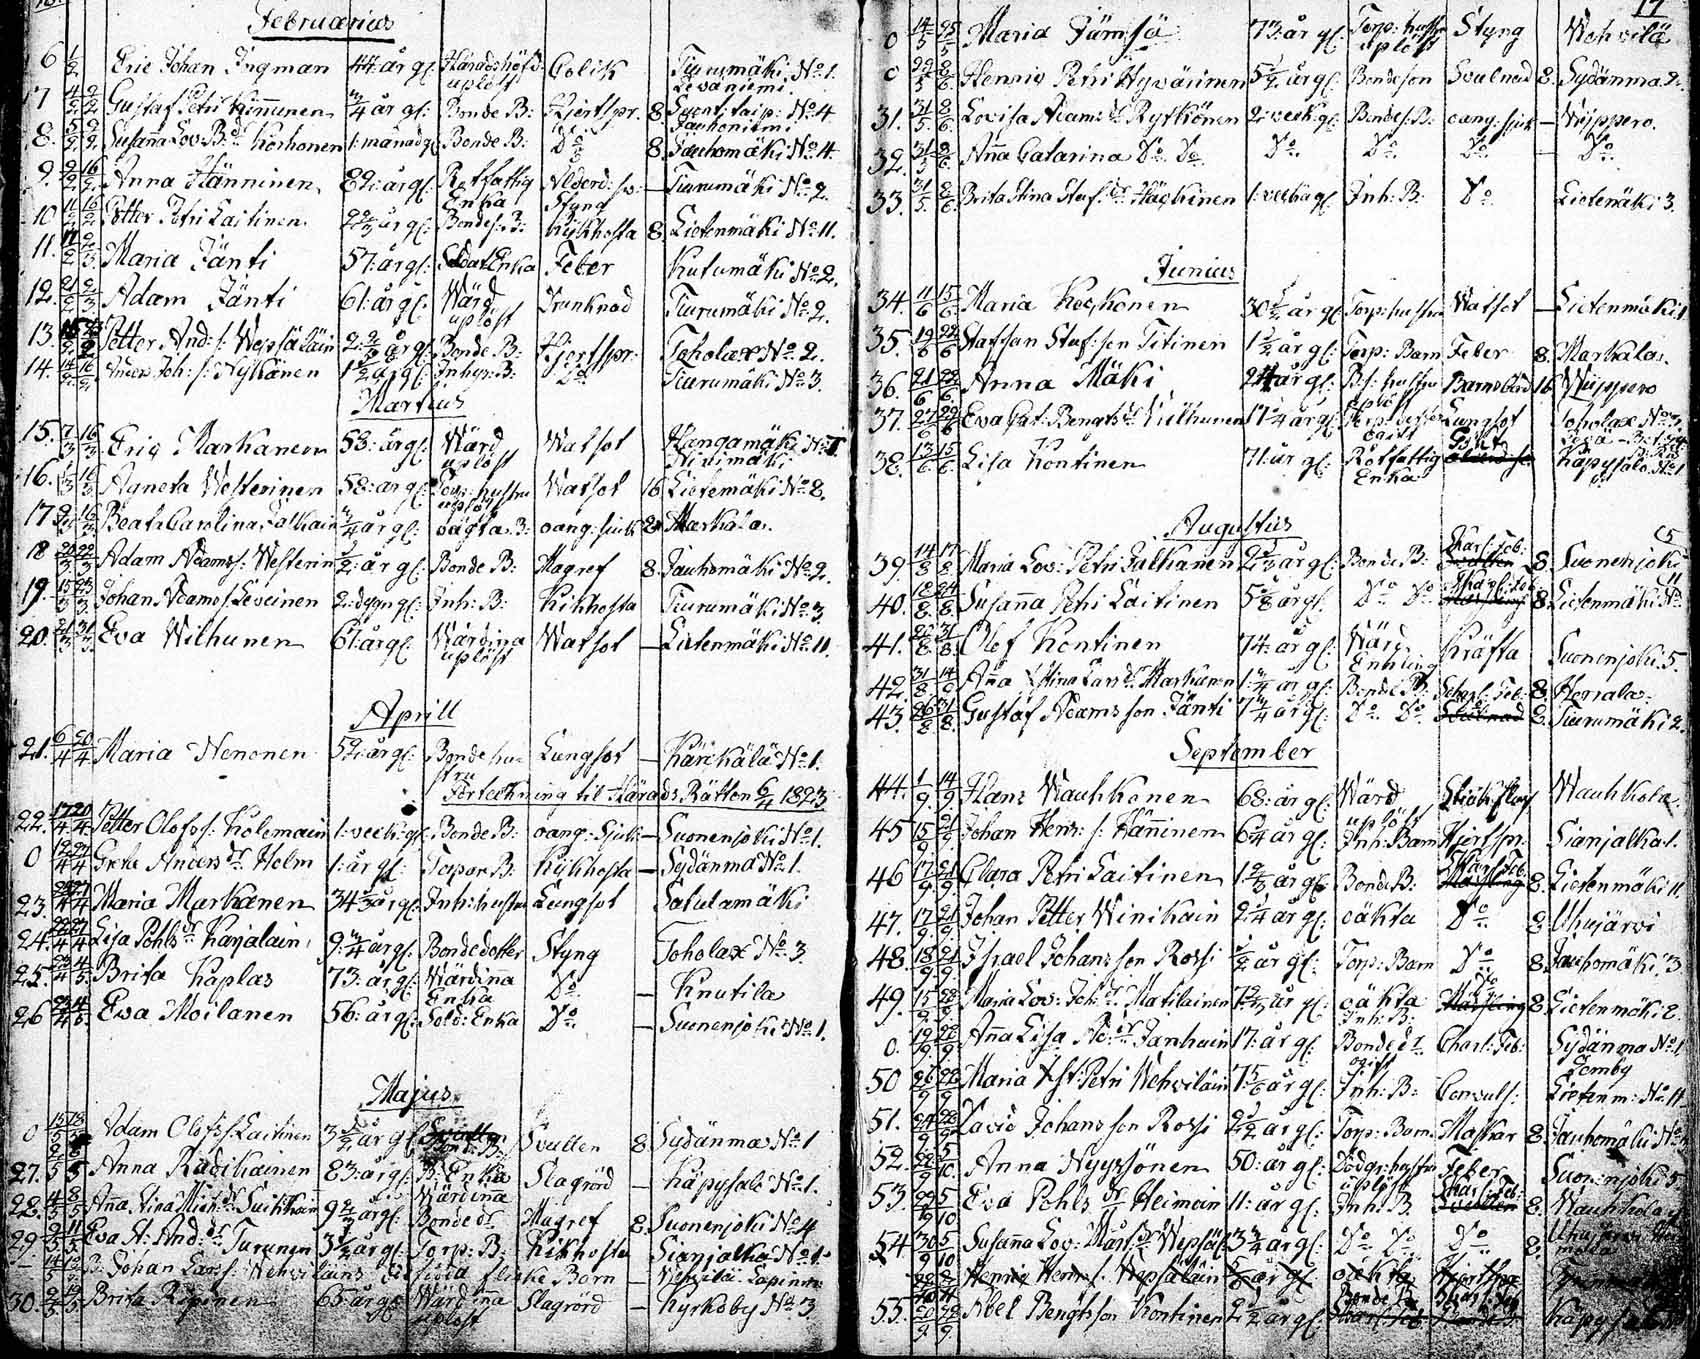 Februarius
6 1/2 Eric Johan Ingman 44 år gl: Häradshöfd: uplöst Colik Tiurumäki No 1. Leväniemi
7 4/2 9/2 Gustaf Petri Kinnunen 3/4 år gl: Bonde B: Hjertspr. 8 No 4
8. 5/2 9/2 Susanna Lov: B: dr Korhonen 1: månad gl Bonde B: Do 8. Jauhomäki No 4.
9. 9/2 16/2 Anna Hänninen 82: år gl: Rotfattig Enka Ålderd: — Tiurumäki No 2.
10. 11/2 16/2 Petter Petri Laitinen 2 2/3 år gl: Bondes: B: Kikhosta 8 Lietenmäki No 11.
11. Maria Jänti 57: år gl: Soldat Enka Feber Kutumäki No 2.
12. 21/2 2/3 Adam Jänti 61: år gl: Wärd uplöst Drunknad Tiurumäki No 2.
13. Petter And: s: Wepsäläin 2: 2/3 år gl: Bonde B: Hjertspr: Toholax No 2.
14. 14/2 16/2 Anders Joh: s: Nykänen 1 1/2 år gl: Inhys: B: Do Tiurumäki No 3.
Martius
15. 7/3 16/3 Eric Markanen 53: år gl: Wärd uplöst Watsot Hangamäki No 1. Niinimäki
16. Agneta Westerinen 58: år gl: Torp: hustru uplöst Watsot 16 Lietemäki No 8.
17 Beata Carolina Jalkain 3/4 år gl: oägta B: oang: siuk 8 Markala.
18 20/3 22/3 Adam Adamss: Westerin 1/2: år gl: Bonde B: Magref 8. Jauhomäki No 2.
19. 15/3 23/3 Johan Adamss: Leveinen 2: dygn gl: Inh: B: Kikhosta Tiurumäki No 3.
20. 21/3 31/3 Eva Wilhunen 67: år gl: Wärdina uplöst Watsot — Lietenmäki No 11.
Aprill
21. 6/4 20/4 Maria Nenonen 52: år gl: Bonde hustru Lungsot — Kärkälä No 1.
Förtekning til Härads Rätten 6/4 1823
22. 17/4 20/4 Petter Olofss: Kolemain 1: veck: gl: Bonde B: oang: Sjuk — Suonenjoki No 1.
0 19/4 27/4 Greta Anders dr Holm 1: år gl: Torpar B: Kikhosta — Sydänma No 1.
23. Maria Markanen 34 2/3 år gl: Inh: hustru Lungsot Salulamäki
24. 22/4 27/4 Lisa Pohls dr Karjalain 9: 3/4 år gl: Bonde dotter Styng Toholax No 3.
25. Brita Kaplas 73: år gl: Wärdinna Enka Do — Knutila
26 Eva Moilanen 56: år gl: Sold: Enka Do — Suonenjoki No 1.
Majus
0 Adam Olofss: Laitinen 3 1/2 år gl: Svulten 8 Sydänma No 1
27. Anna Rädikäinen 83: år gl: B: Enka Slagrörd — Käpysalo No 1.
28. 4/5 8/5 Anna Stina Mich: dr Suihkoin 9 2/3 år gl: Wärdina Bonde dr Magref 8. Suonenjoki No 4
29. Eva St: And: dr Turunen 3 1/2 år gl: Torp: B: Kikhosta Sianjalka No 1.
Johan Lars s: Wehviläins flicke Barn — Wehvilä
30. Brita Räpinen 65 år gl: Wärdinna uplöst Slagrörd — Kyrkoby No 3
17
0 14/5 25/5 Maria Jämsä 73: år gl: Torp: hustru uplöst Styng Wehvilä
0 Henric Petri Hyvärinen 5 1/2 år gl: Bondeson Svulnad 8: Sydänma 2.
31. 31/5 8/6 Lovisa Adams dr Rytkönen 2: veck: gl: Bondes: B: oang: sjuk — Wippero.
32. 31/5 8/6 Anna Catarina Do Do Do Do Do — Do
33. 31/5 8/6 Brita Stina Staf: dr Häckinen 1: vecka gl: Inh: B: Do Lietemäki 3.
Junius
34. 11/6 15/6 Maria Koskonen 30 1/2 år gl: Torp: hustru Watsot — Lietenmäki 1
35. 19/6 22/6 Staffan Staf: son Titinen 1 1/2 år gl: Torp: Barn Feber 8. Markala.
36. 21/6 22/6 Anna Mäki 24 år gl: B: hustru uplöst Barns börd 16. Wippero
37. 27/6 29/6 Eva Cat: Bengts dr Wilhunen 17 1/4 år gl: Torp: dotter ogift Lungsot Toholax No 3.
38. 13/6 15/6 Lisa Kontinen 71: år gl: Rotfattig Enka Käpysalo No 1
Augustus
39. 14/8 17/8 Maria Lov: Petri Jalkanen 2 1/3 år gl: Bonde B: Skarl: Feb: 8 Suonenjoki 5
40. 18/8 24/8 Susanna Petri Laitinen 5 5/8 år gl: Do Do Skarl: Feb: 8 Lietenmäki No 11
41. 22/8 31/8 Olof Kontinen 74: år gl: Wärd Enkling Kräfta Suonenjoki 5.
42. 31/8 14/9 Anna Stina Lars dr Markanen 1: 3/4 år gl: Bonde B: Scharl: Feb: 8. Herrala.
43. 26/8 31/8 Gustaf Adamsson Jänti 7 3/4 år gl: Do Do 8. Tiurumäki 2.
September
44. 1/9 14/9 Hans Wauhkonen 68: år gl: Wärd uplöst Wauhkola
45 15/9 21/9 Johan Henr: s: Hänninen 6 1/4 år gl: Inh: Barn Hjertspr: Sianjalka 1.
46 17/9 21/9 Clara Petri Laitinen 1 2/3 år gl: Bonde B: Skarl: Feb. 8. Lietenmäki 11.
47. 17/9 21/9 Johan Petter Winikain 2 1/4 år gl: oäkta Do 8 Uhujärvi
48. 18/9 21/9 Israel Johansson Rossi 1/2 år gl: Torp: Barn Do 8. Jauhomäki 3
49. 15/9 28/9 Maria Lov: Joh: dr Matilainen 7 2/3 år gl: oäkta Inh: B: Do 8 Lietenmäki 2.
0. 19/9 28/9 Anna Lisa Ad: dr Janhuin 17: år gl: Bonde dr ogift Charl: Feb: Sydänma No 1 Jemby
50 Maria Petri Wehviläin 7 5/6 år gl: Inh: B: Convuls: Lietenm: No 11
51. David Johansson Rossi 2 1/2 år gl: Torp: Barn Maskar 8. Jauhomäki
52. Anna Nyyssönen 50: år gl: Dödgr: hustru uplöst Feber Suonenjoki 5
53. Eva Pohls dr Heimoin 11: år gl: Inh: B. Skarl: Feb: 8 Wauhkola
54 30/9 5/10 Susanna Lov: Mårt: dr Wepsäl 3 3/4 år gl: Do Do Do 8. Uhujärvi
Henric Henr: s: Wepsäläin år gl: oäkta Hjertspr
55. Abel Bengtsson Kontinen 2 1/2 år gl: Bonde B: Skarl: Feb Käpysalo